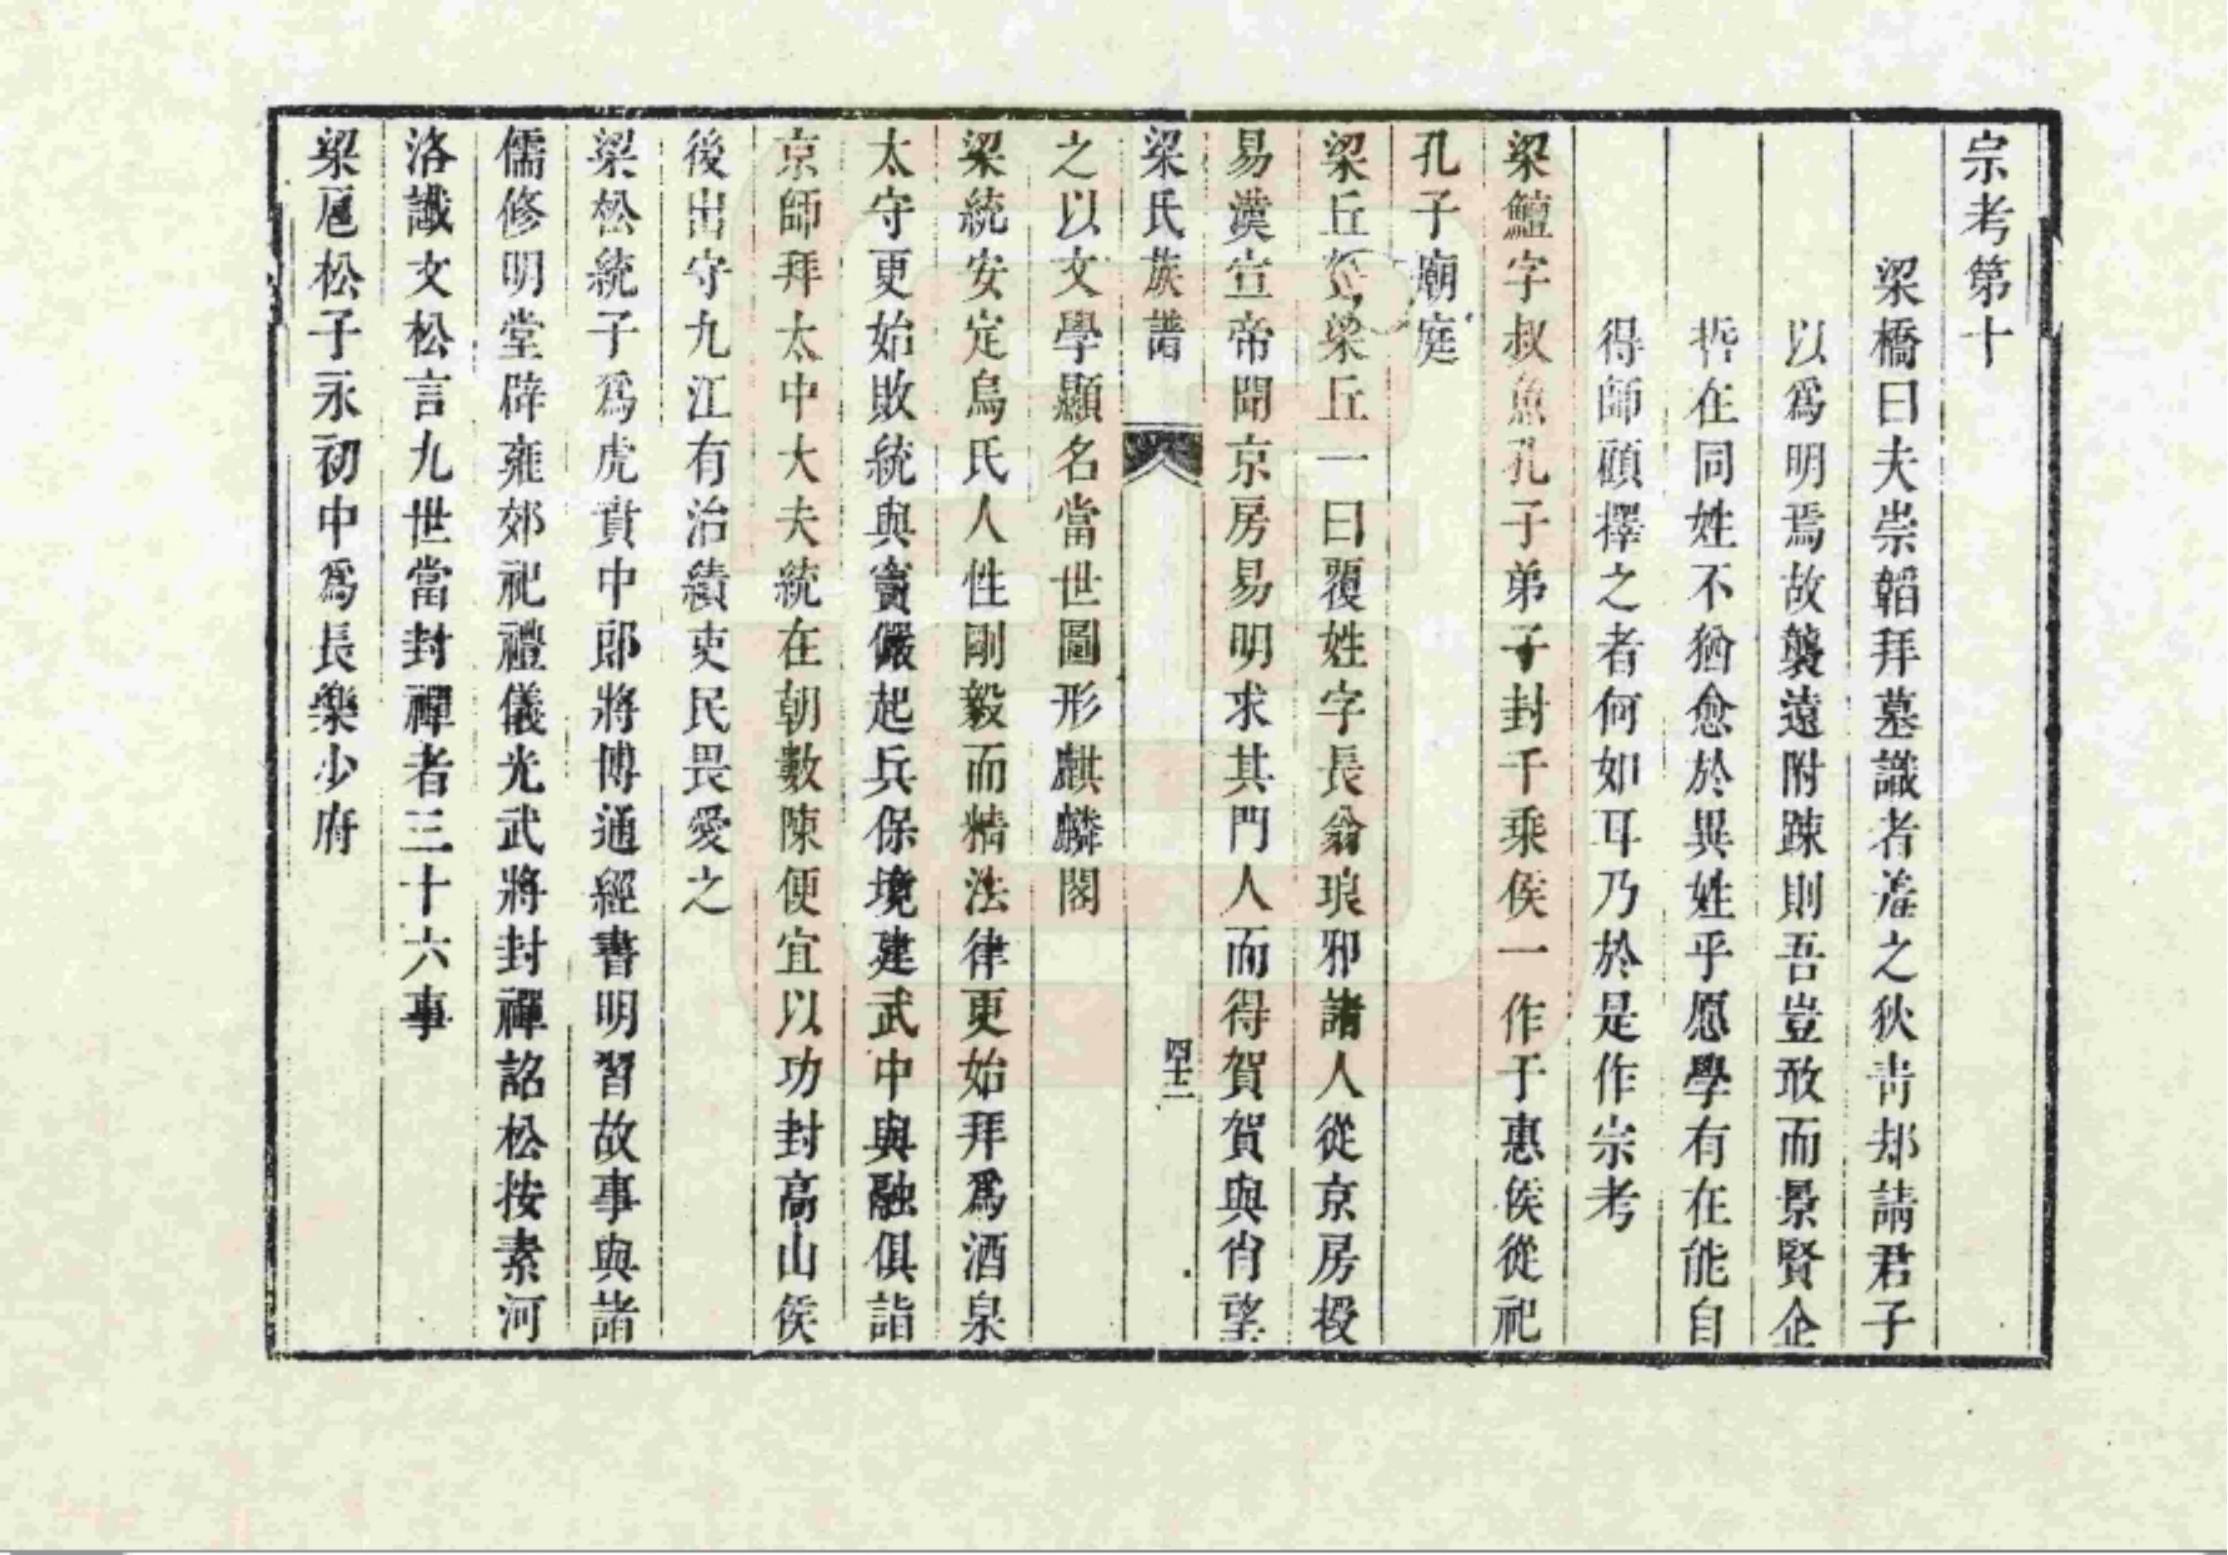 宗考第十
梁橋曰夫崇韜拜墓識者羞之狄青却請君子
以爲明焉故襲遠附踈則吾豈敢而景賢企
哲在同姓不猶愈於異姓乎愿學有在能自
得師顧擇之者何如耳乃於是作宗考
梁鱣字叔魚孔子弟子封千乘侯一作于惠侯從祀
孔子廟庭
梁丘賀梁丘一曰覆姓字長翁琅邪諸人從京房授
易漢宣帝聞京房易明求其門人而得賀賀與肖望
梁氏族譜
四十二
之以文學顯名當世圖形麒麟閣
梁統安定烏氏人性剛毅而精法律更始拜爲酒泉
太守更始敗統與竇儼起兵保境建武中與融俱詣
京師拜太中大夫統在朝數陳便宜以功封高山侯
後出守九江有治績吏民畏愛之
梁松統子爲虎賁中郎將博通經書明習故事與諸
儒修明堂辟雍郊祀禮儀光武將封禪詔松按素河
洛讖文松言九世當封禪者三十六事
梁扈松子永初中爲長樂少府